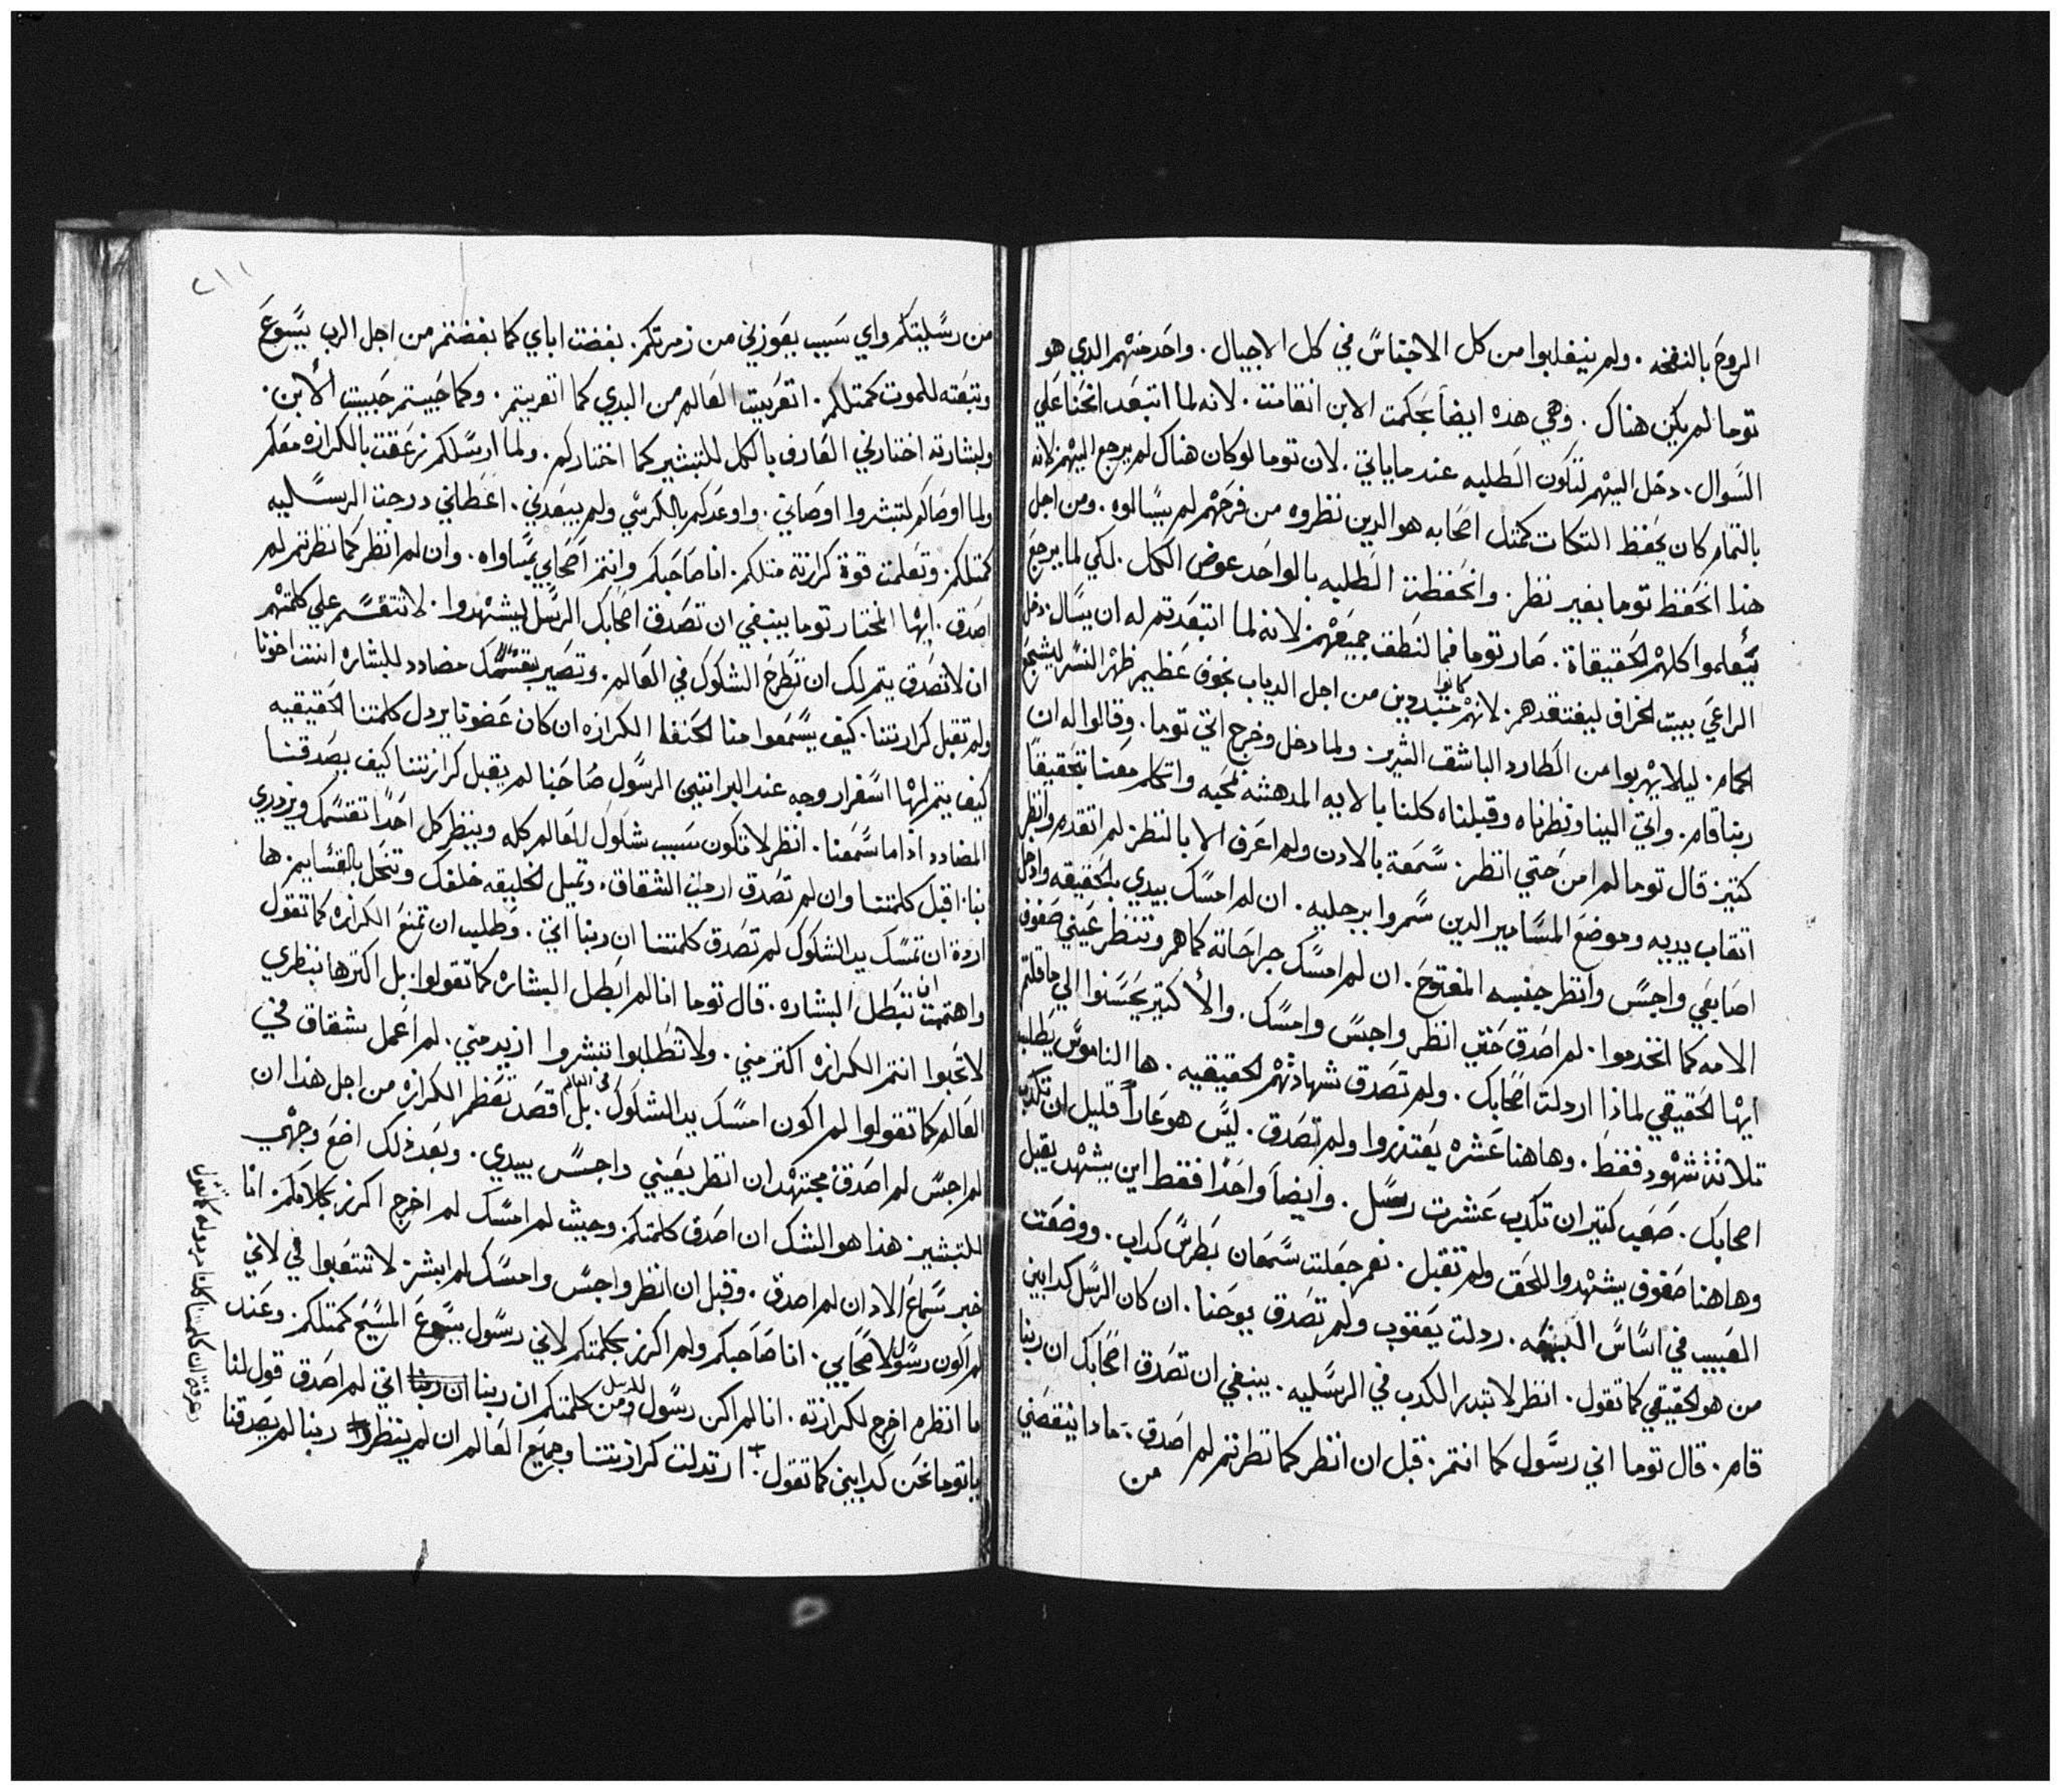 الروح بالنفخه. ولم ينغلبوا من كل الاجناس في كل الاجيال. واحد منهم الدي هو
توما لم يكن هناك. وهي هده ايضا بحكمت الابن انقامت. لانه لما اتبعد انحنا علي
السوال. دخل اليهم لتكون الطلبه عند ما ياتي. لان توما لو كان هناك لم يرجع اليهم لانه
بالتمام كان يحفظ التكات كمتل اصحابه هو الدين نظروه من فرحهم لم يسالوه. ومن اجل
هدا انحفظ توما بغير نظر. وانحفظت الطلبه بالواحد عوض الكل. لكي لما يرجع
يتعلموا كلهم الحقيقاة. صار توما فما لنطق جميعهم لانه لما اتبعدتم له ان يسال. دخل
الراعي بيت الخراف ليفتقدهم. لانهم كانوا متبددين من اجل الدياب بخوف عظيم ظهر النسر ليشجع
الحمام. ليلا يهربوا من الطارد الباشق الشرير. ولما دخل وخرج اتي توما. وقالوا له ان
ربنا قام. واتي الينا ونظرناه وقبلناه كلنا بالايه المدهشه نحيه واتكلم معنا بتحقيقا
كتير. قال توما لم امن حتي انظر. سمعة بالادن ولم اعرف الا بالنظر. لم اتقدم وانظر
اتقاب يديه وموضع المسامير الدين سمروا برجليه. ان لم امسك بيدي بالحقيقه وادخل
اصابعي واجس وانظر جنبه المفتوح. ان لم امسك جراحاته كما هم وتنظر عيني صفوف
الامه كما انخدموا. لم اصدق حتي انظر واجس وامسك. والأ كتير يحسنوا الي ما قلتم
ايها الحقيقي لمادا اردلت اصحابك. ولم تصدق شهادتهم الحقيقيه. ها الناموس يطلب
تلاتة شهود فقط. وها هنا عشره يعتدروا ولم تصدق. ليس هو عارا قليل ان تكدب
اصحابك. صعب كتير ان تكدب عشرت رسل. وايضا واحدا فقط اين يشهد يقبل
وها هنا صفوف يشهدوا للحق ولم تقبل. نعم جعلت سمعان بطرس كداب. ووضعت
العيب في اساس البيعه. ردلت يعقوب ولم تصدق يوحنا. ان كان الرسل كدابين
من هو الحقيقي كما تقول. انظر لا تبدر الكدب في الرسليه. ينبغي ان تصدق اصحابك ان ربنا
قام. قال توما اني رسول كما انتم. قبل ان انظر كما نظرتم لم اصدق. مادا ينقصني
من
٢١١
من رسليتكم واي سبب يعوزني من زمرتكم. بغضت اباي كما بغضتم من اجل الرب يسوع
وتبعته للموت كمتلكم. اتغربت العالم من البدي كما اتغربتم. وكما حبيتم حبيت الأبن.
ولبشارته اختارني العارف بالكل للتبشير كما اختاركم. ولما ارسلكم زعقت بالكرازه معكم
ولما اوصاكم لتبشروا اوصاني. واوعدكم بالكرسي ولم يبعدني. اعطاني درجت الرسليه
كمتلكم. وتعلمت قوة كرازته متلكم. انا صاحبكم وانتم اصحابي بمساواه. وان لم انظر كما نظرتم لم
اصدق. ايها المختار توما ينبغي ان تصدق اصحابك الرسل ليشهدوا. لا تتقسم علي كلمتهم
ان لا تصدق يتم لك ان تطرح الشكوك في العالم. وتصير بتقسمك مضادد للبشاره انت اخونا
ولم تقبل كرازتنا. كيف يسمعوا منا الحنفا الكرازه ان كان عضونا يردل كلمتنا الحقيقيه
كيف يتم لها اسفرار وجه عند البرانيين الرسول صاحبنا لم يقبل كرازتنا كيف يصدقنا
المضادد ادا ما سمعنا. انظر لا تكون سبب شكوك للعالم كله وينظر كل احدا تقسمك ويزدري
بنا. اقبل كلمتنا وان لم تصدق ارميت الشقاق. وتميل الخليقه خلفك وتنحل بالقساييم. ها
اردة ان تمسك بيد الشكوك لم تصدق كلمتنا ان ربنا اتي. وطلبت ان تمنع الكرازه كما تقول
واهتميت ان تبطل البشاره. قال توما انا لم ابطل البشاره كما تقولوا. بل اكترها بنظري
لا تحبوا انتم الكرازه اكتر مني. ولا تطلبوا تبشروا ازيد مني. لم اعمل شقاق في
العالم كما تقولوا لم اكون امسك بيد الشكوك في العالم. بل اقصد تعظم الكرازه من اجل هدا ان
لم اجس لم اصدق. مجتهد ان انظر بعيني واجس بيدي. وبعد دلك اضع وجهي
للتبشير. هدا هو الشك ان اصدق كلمتكم. وحيت لم امسك لم اخرج اكرز بكلامكم. انا
خبر سماع الادان لم اصدق. وقبل ان انظر واجس وامسك لم ابشر. لا تتعبوا في لاني
لم اكون رسول لاصحابي. انا صاحبكم ولم اكرز بكلمتكم لاني رسول يسوع المسيح كمتلكم. وعند
ما انظره اخرج لكرازته. انا لم اكن رسول للرسل ومن كلمتكم ان ربنا اتي لم اصدق قول لنا
يا توما نحن كدابين كما تقول. ارتدلت كرازتنا وجميع العالم ان لم ينظروا ربنا لم يصدقنا